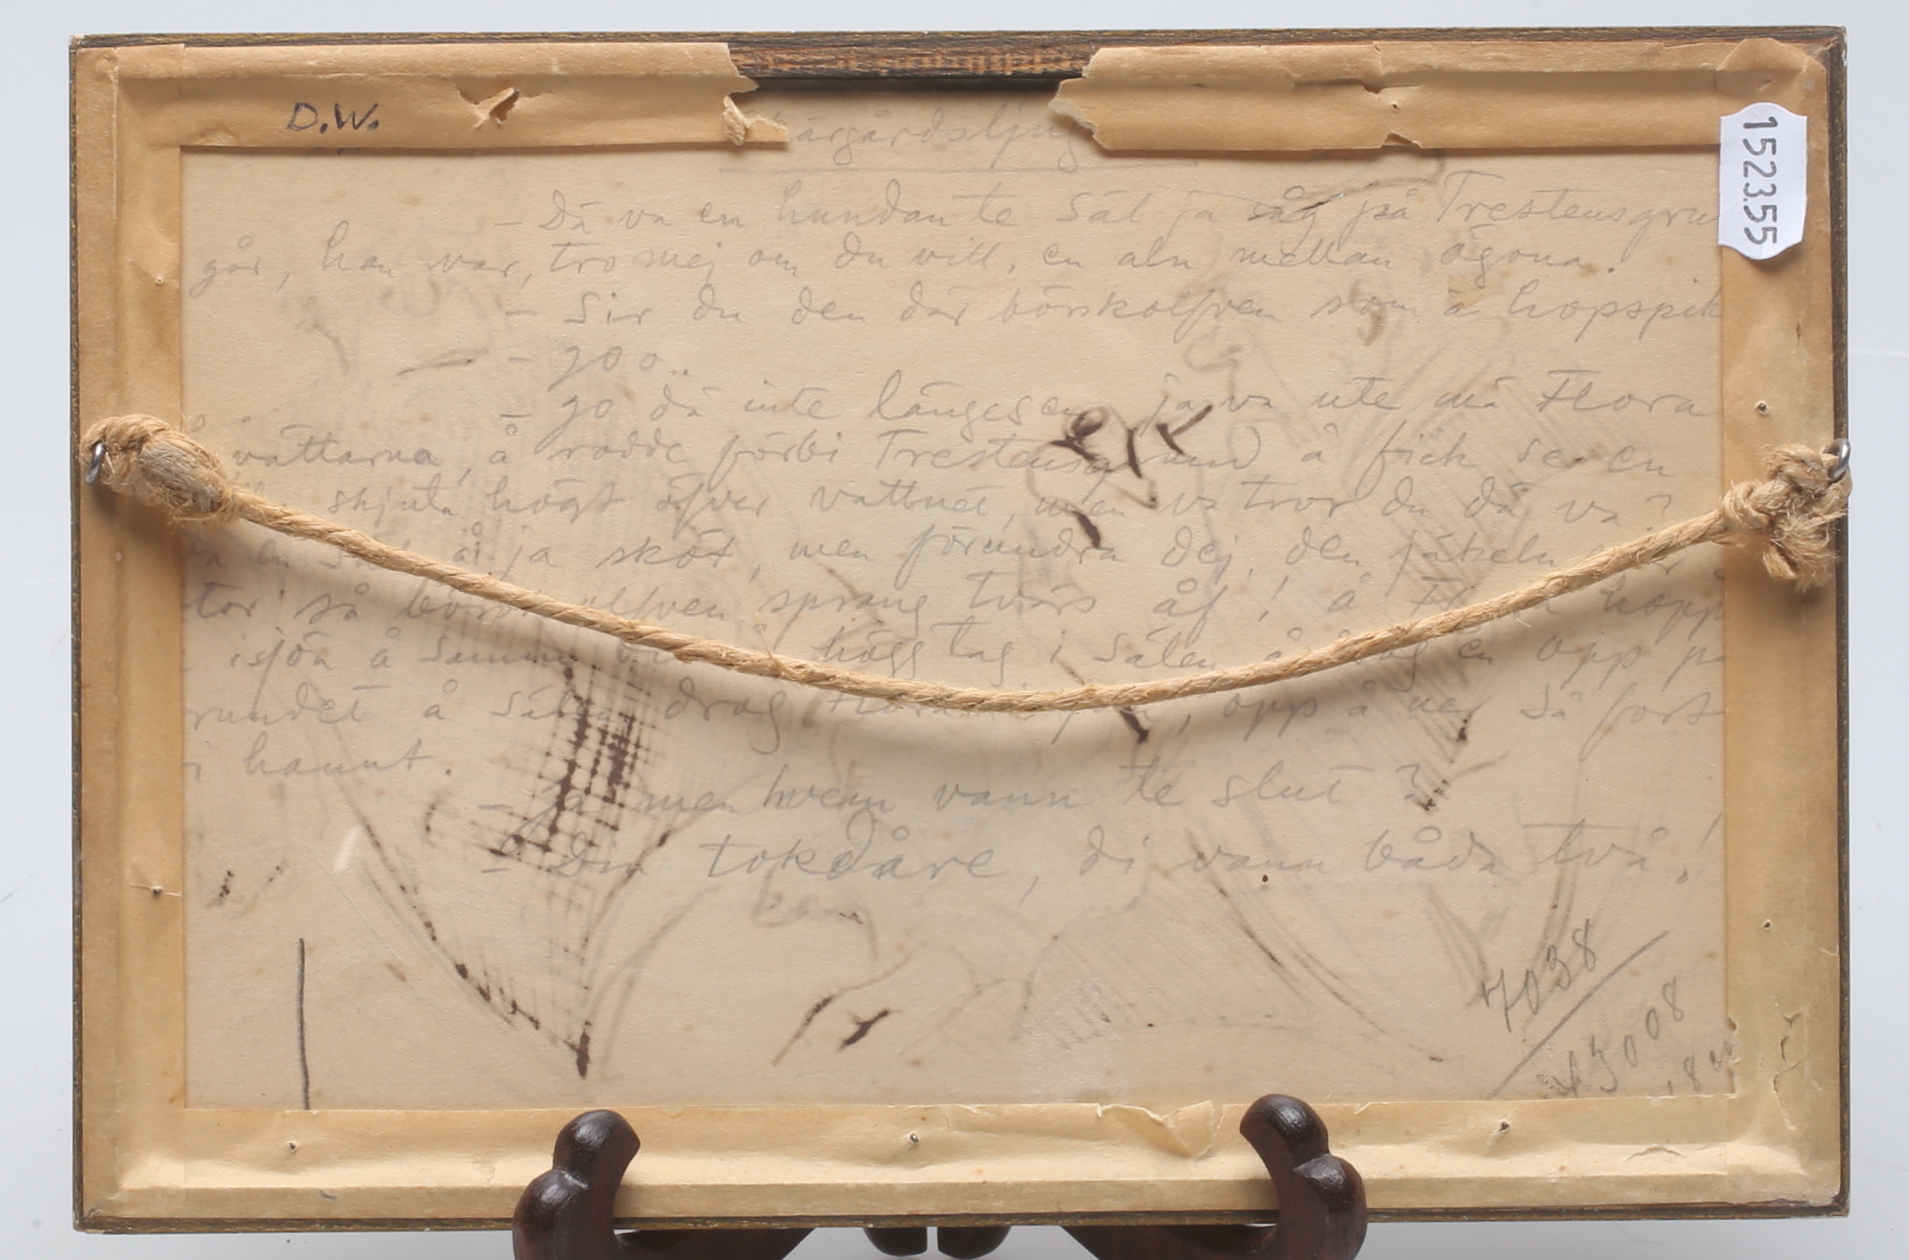 D.W.
1523.55
kärgårdsljug
- Dä va en hundan te Säl ja såg på Trestensgru
går, han var, tro mej om du vill, en aln mellan ögona.
- Sir du den där börskolfven som ä hopspik
- joo..
- jo dä inte längesen ja va ute mä Flora
vättarna, å rodde förbi Trestensgrund å fick se en
skjuta högt öfver vattnet, men va tror du dä va?
va en Säl å ja sköt, men förundra dej, den jäkeln
så sprang tvärs åf! å Flora hopp
isjön å högg tag i Sälen å drog en opp på
rundet å Sälen drog Flora opp å ner Så fort
i hannt.
- Ja men hvem vann te slut?
- Din tokdåre, di vann båda två!
7038
45008